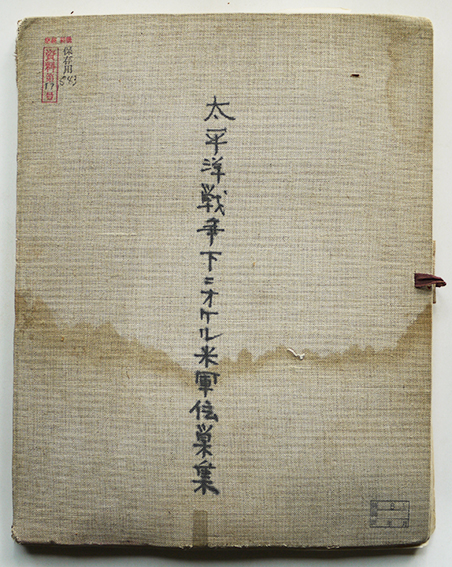 保存用
543
資料第17号
太平洋戦争下ニオケル米軍伝巣集